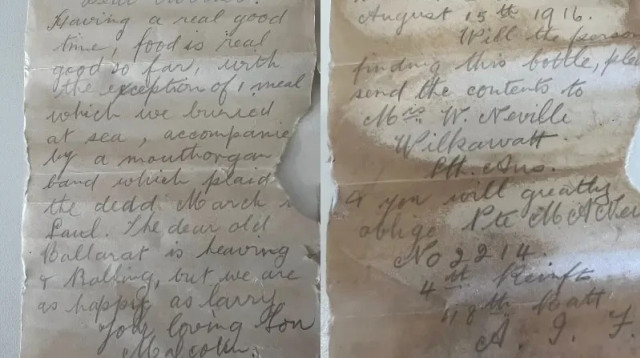 Having a real good
time, food is real
good so far, with
the exception of 1 meal
which we burried
at sea, accompanie
by a mouthorgan
band which plaid
the dedd March
Saul. The dear old
Ballarat is heaving
& Rolling, but we are
as happy as larry
Your loving Son
Malcolm.
August 15th 1916.
Will the person
finding this bottle, plea
send the contents to
Mrs W. Neville
Wilkawatt
Sth. Aus.
& you will greatly
oblige Pte M A Nev
No 2214.
4th Reinft
48th Batt
A. I. F.